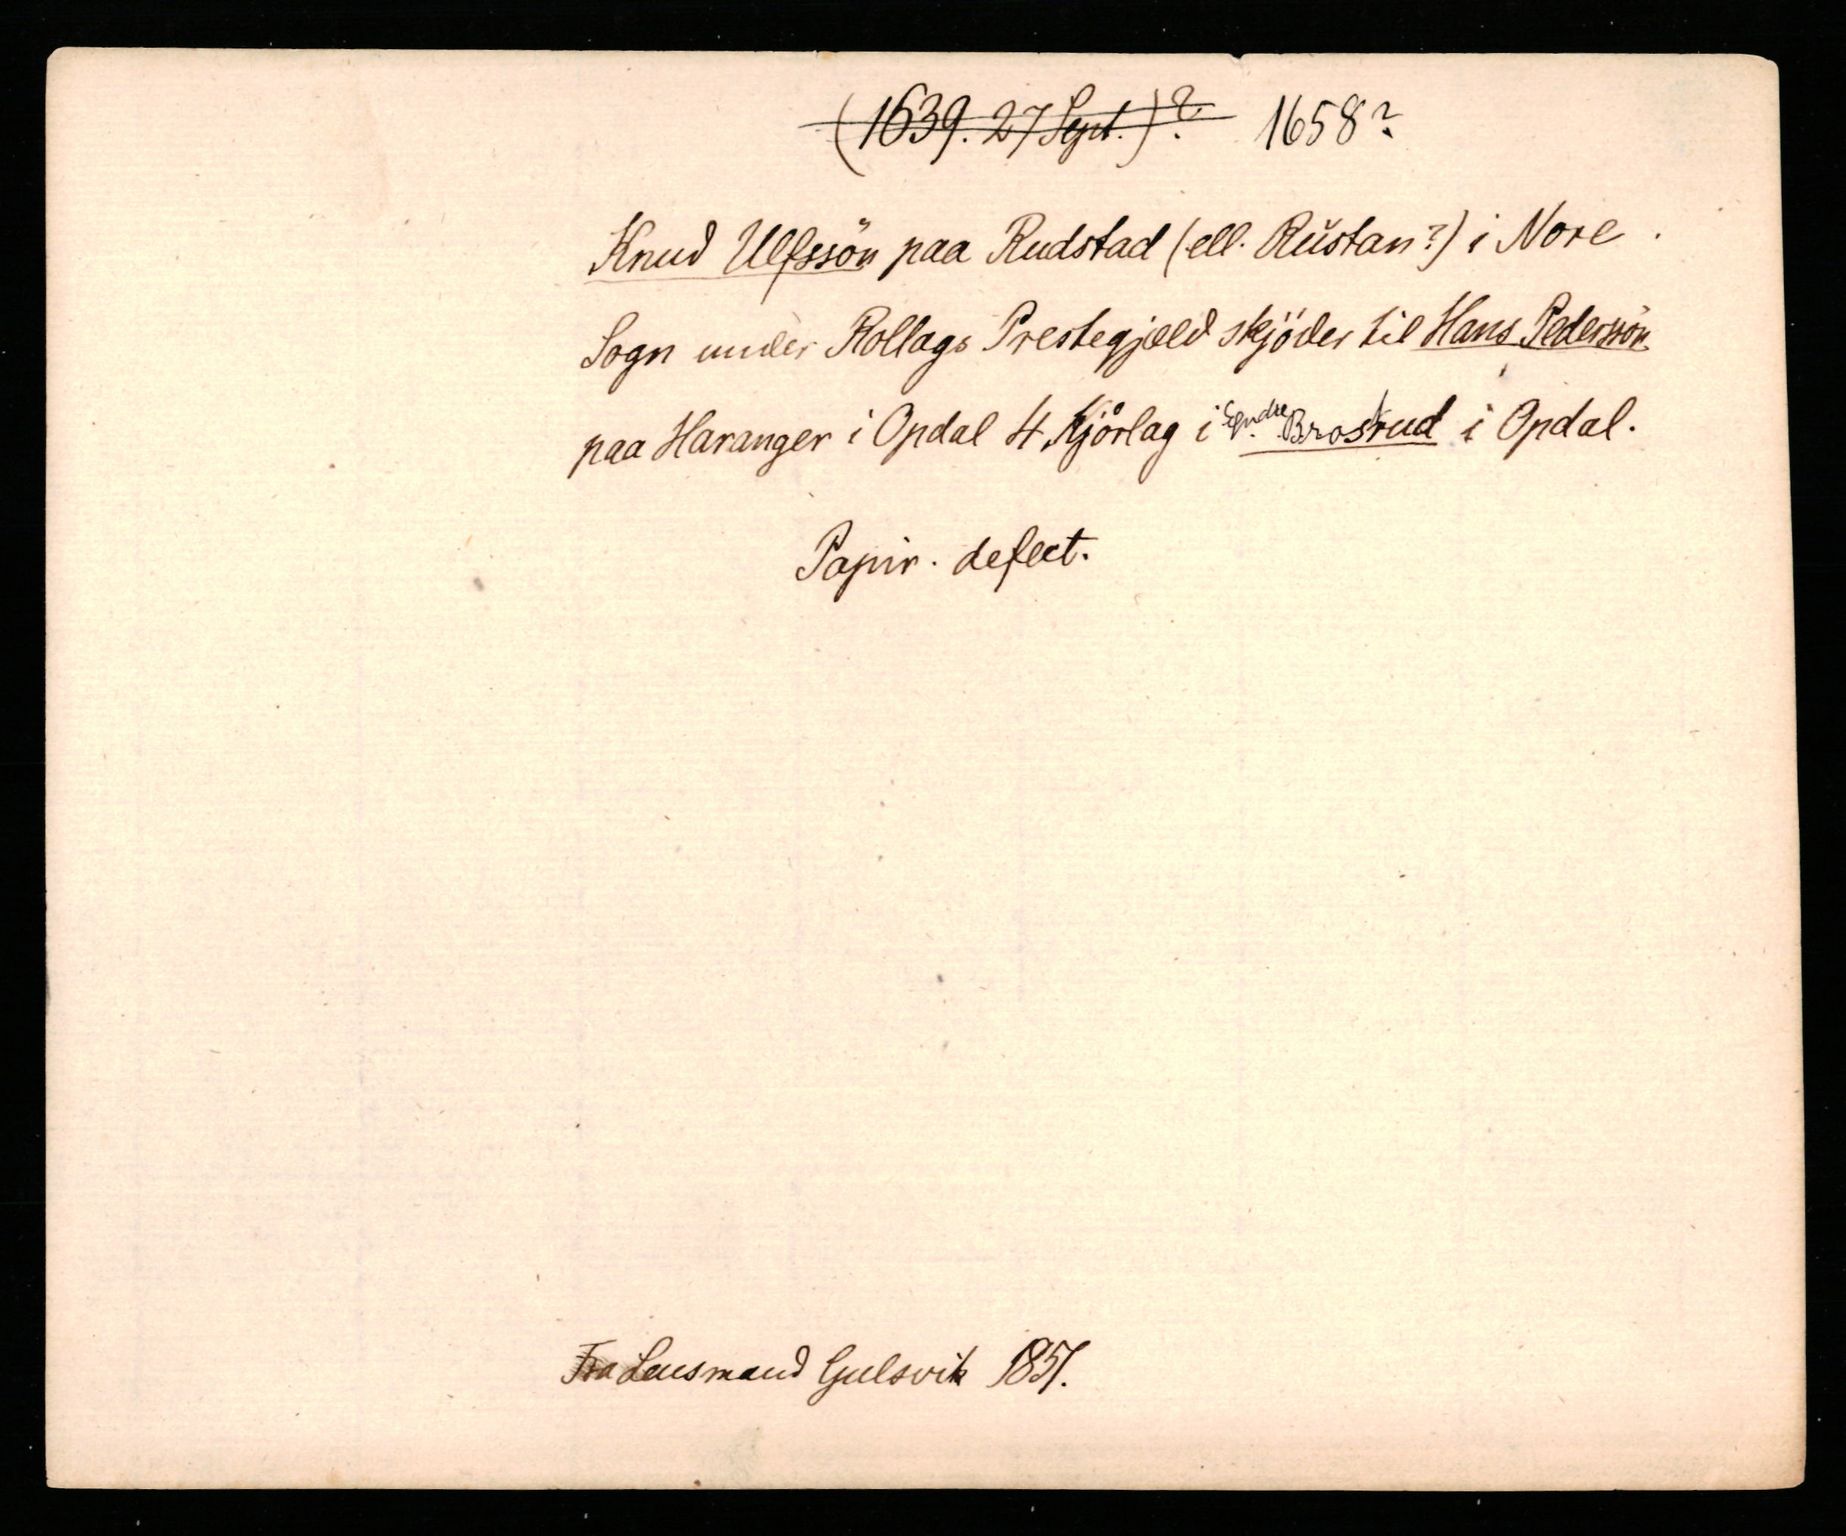 (1639. 27 Sept.)? 1658?
Knud Ulfssön paa Rudstad (ell. Rŭstan?) i Nore
Sogn under Rollags Prestegjæld skjöder til Hans Pederssön
paa Haranger i Opdal 4 Kjørlag i Brostrud i Opdal.
Papir. defect.
Fra Lensmand Gulsvik 1851.